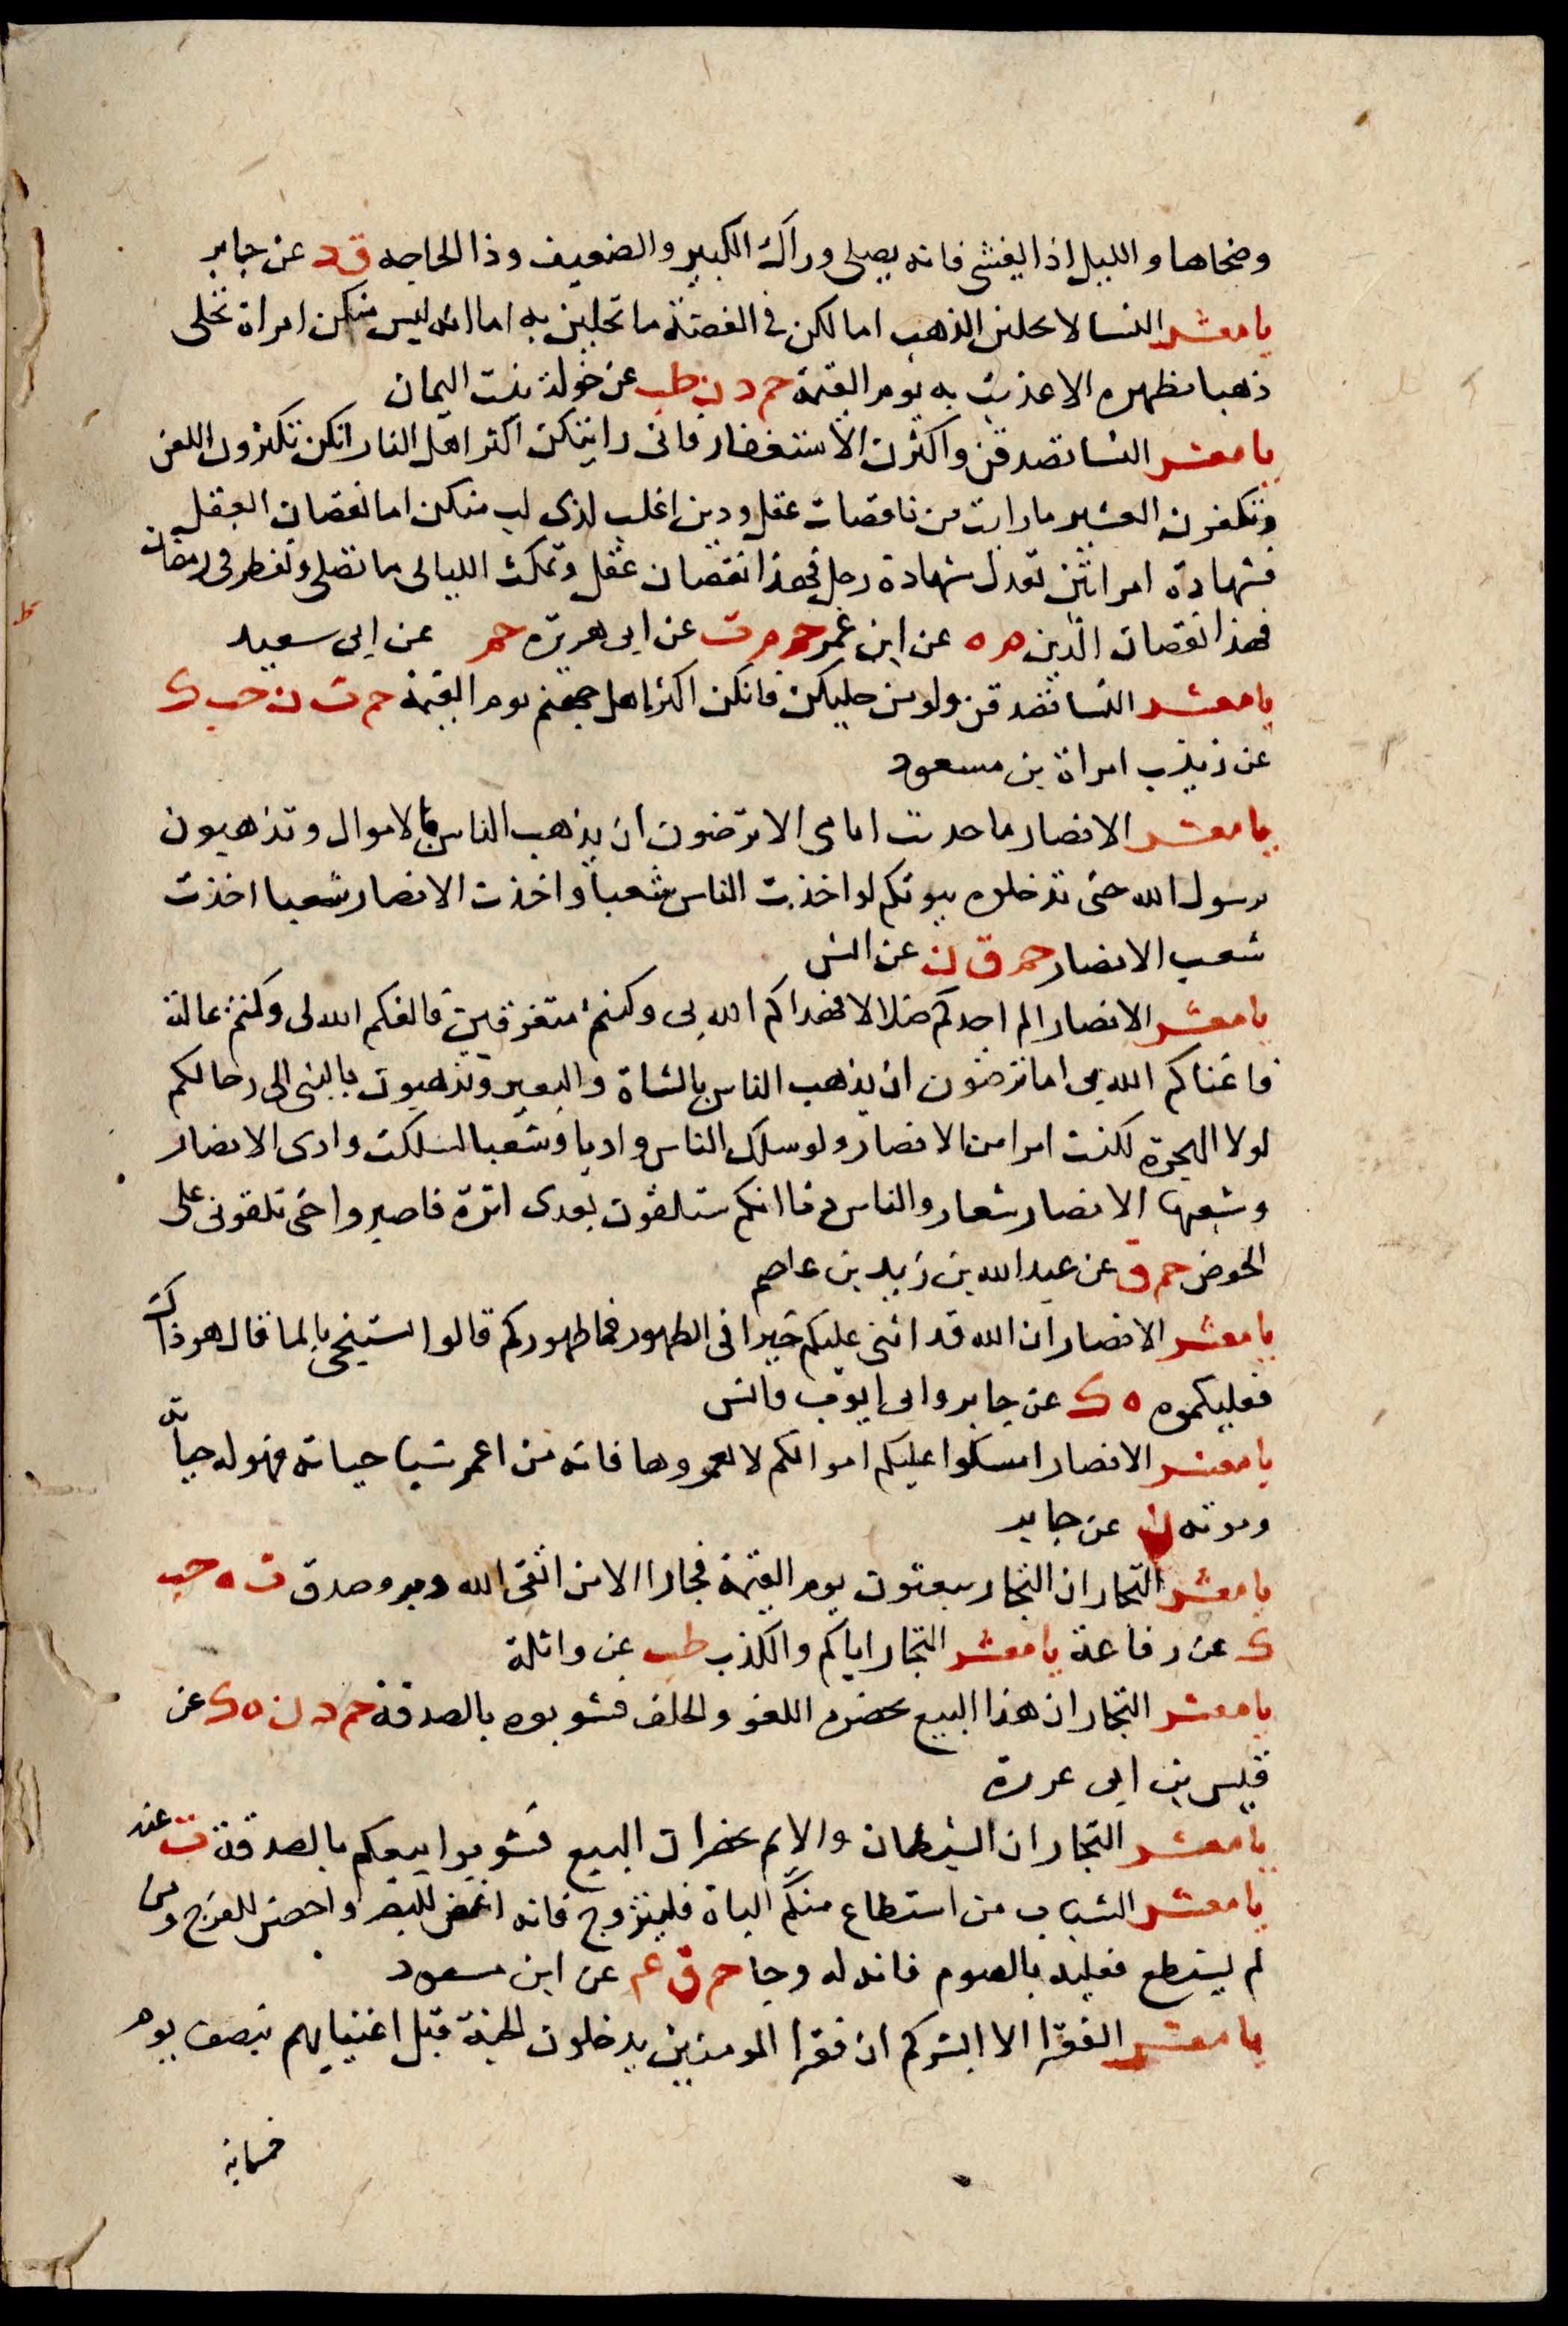 وضحاها والليل اذا يغشى فانه يصلى وراك الكبير والضعيف وذا الحاجه ق د عن جابر
يا معشر النسا لا تحلين الذهب اما لكن فى الفضة ما تحلين به اما انه ليس منكن امراة تحلى
ذهبا تظهره الا عذبت به يوم القيمة حم د ن طب عن خولة بنت اليمان
يا معشر النسا تصدقن واكثرن الاستغفار فانى رايتكن اكثر اهل النار انكن تكثرون اللعن
وتكفرن العشير ما رايت من ناقصات عقل ودين اغلب لذى لب منكن اما نقصان العقل
فشهادة امراتين تعدل شهادة رجل فهذا نقصان عقل وتمكث الليالى ما تصلى وتفطر فى رمضان
فهذا نقصان الدين م ه عن ابن عمر حم م ت عن ابى هريرة حم عن ابى سعيد
يا معشر النسا تصدقن ولو من حليكن فانكن اكثر اهل جهنم يوم القيمة حم ت ن حب ك
عن زينب امراة بن مسعود
يا معشر الانصار ما حديث اتانى الا ترضون ان يذهب الناس بالاموال وتذهبون
برسول الله حتى تدخلوه بيوتكم لو اخذت الناس شعبا واخذت الانصار شعبا اخذت
شعب الانصار حم ق ن عن انس
يا معشر الانصار الم اجدكم ضلالا فهداكم الله بى وكنتم متفرقين فالفكم الله بى وكنتم عالة
فاغناكم الله بى اما ترضون ان يذهب الناس بالشاة والبعير وتذهبون بالنبى الى رحالكم
لولا الهجرة لكنت امرا من الانصار ولو سلك الناس واديا وشعبا لسلكت وادى الانصار
وشعبها الانصار شعار والناس دثار انكم ستلقون بعدى اثرة فاصبروا حتى تلقونى على
الحوض حم ق عن عبد الله بن زيد بن عاصم
يا معشر الانصار ان الله قد اثنى عليكم خيرا فى الطهور فما طهوركم قالوا نستنجى بالما قال هو ذاك
فعليكموه ه ك عن جابر وابى ايوب وانس
يا معشر الانصار امسكوا عليكم اموالكم لا تعمروها فانه من اعمر شيا حياته فهو له حياته
وموته ن عن جابر
يا معشر التجار ان التجار يبعثون يوم القيمة فجارا الا من اتقى الله وبر وصدق ت ه حب
ك عن رفاعة يا معشر التجار اياكم والكذب طب عن واثلة
يا معشر التجار ان هذا البيع يحضره اللغو والحلف فشوبوه بالصدقة حم د ن ه ك عن
قيس بن ابى غرزة
يا معشر التجار ان الشيطان والاثم يحضران البيع فشوبوا بيعكم بالصدقة ت عنه
يا معشر الشباب من استطاع منكم الباة فليتزوج فانه اغض للبصر واحصن للفرج ومن
لم يستطع فعليه بالصوم فانه له وجا حم ق ع عن ابن مسعود
يا معشر الفقرا الا ابشركم ان فقرا المومنين يدخلون الجنة قبل اغنيايهم بنصف يوم
خمسماية